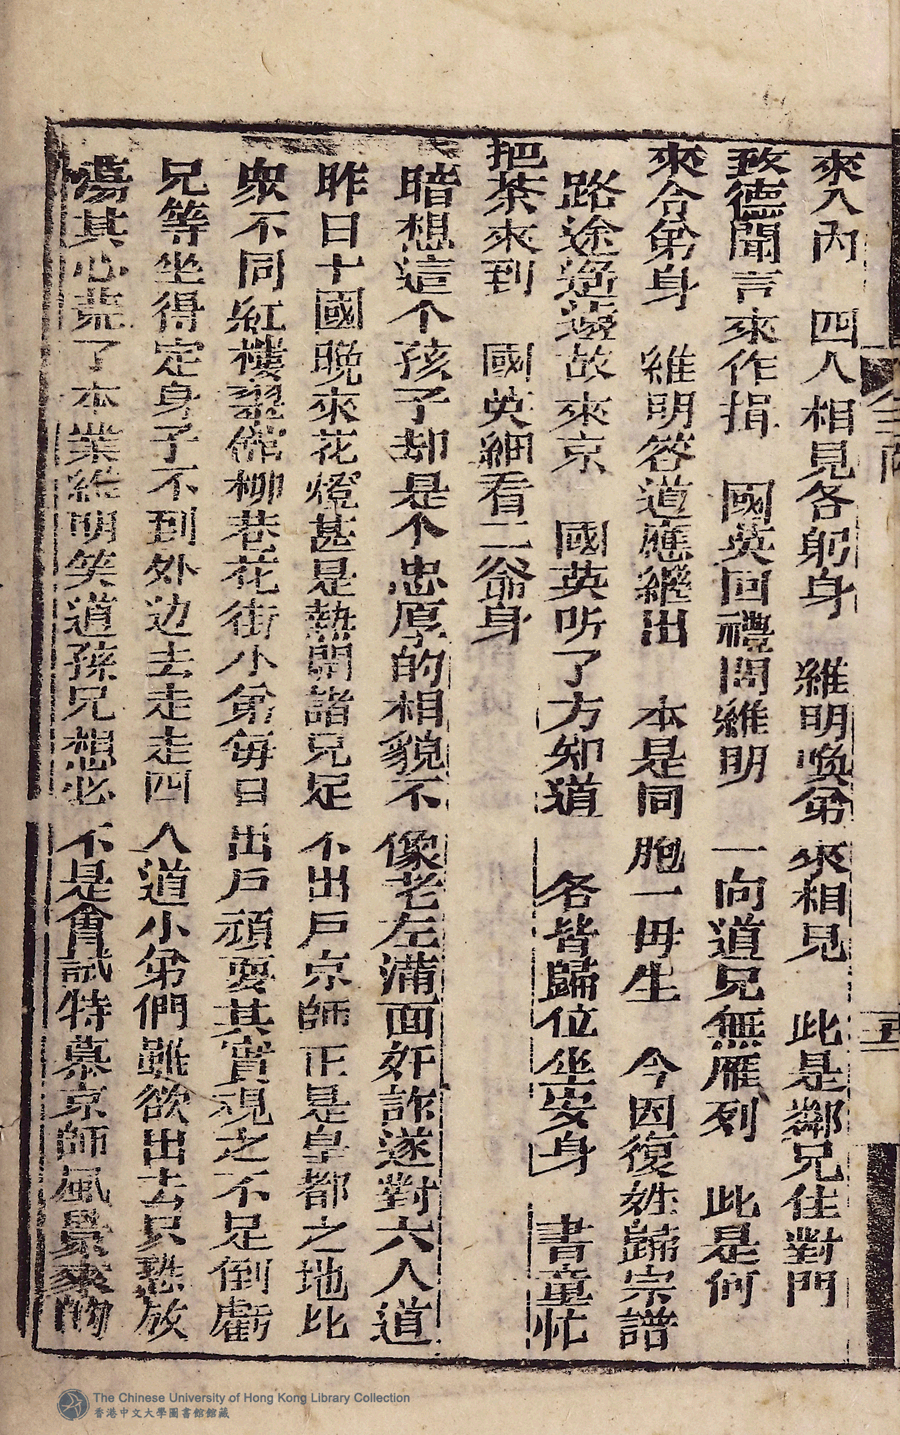 來入內　四人相見各躬身　維明喚弟來相見　此是鄰兄住對門
致德聞言來作揖　國英回禮問維明　一向道兄無雁列　此是何
來合弟身　維明答道應繼出　本是同胞一母生　今因復姓歸宗譜
路途遥遠故來京　國英听了方知道　各皆歸位坐安身　書童忙
把茶來到　國英細看二爺身
暗想這个孩子却是个忠厚的相貌不像老左滿面奸詐遂對六人道
昨日十國晚來花燈甚是熱鬧諸兄足不出戶京師正是皇都之地比
衆不同紅樓翠館柳巷花街小弟每日出戶頑耍其實觀之不足倒虧
兄等坐得定身子不到外边去走走四人道小弟們雖欲出去只恐放
蕩其心荒了本業維明笑道孫兄想必不是會試特慕京師風景來的
The Chinese University of Hong Kong Library Collection
香港中文大學圖書館館藏